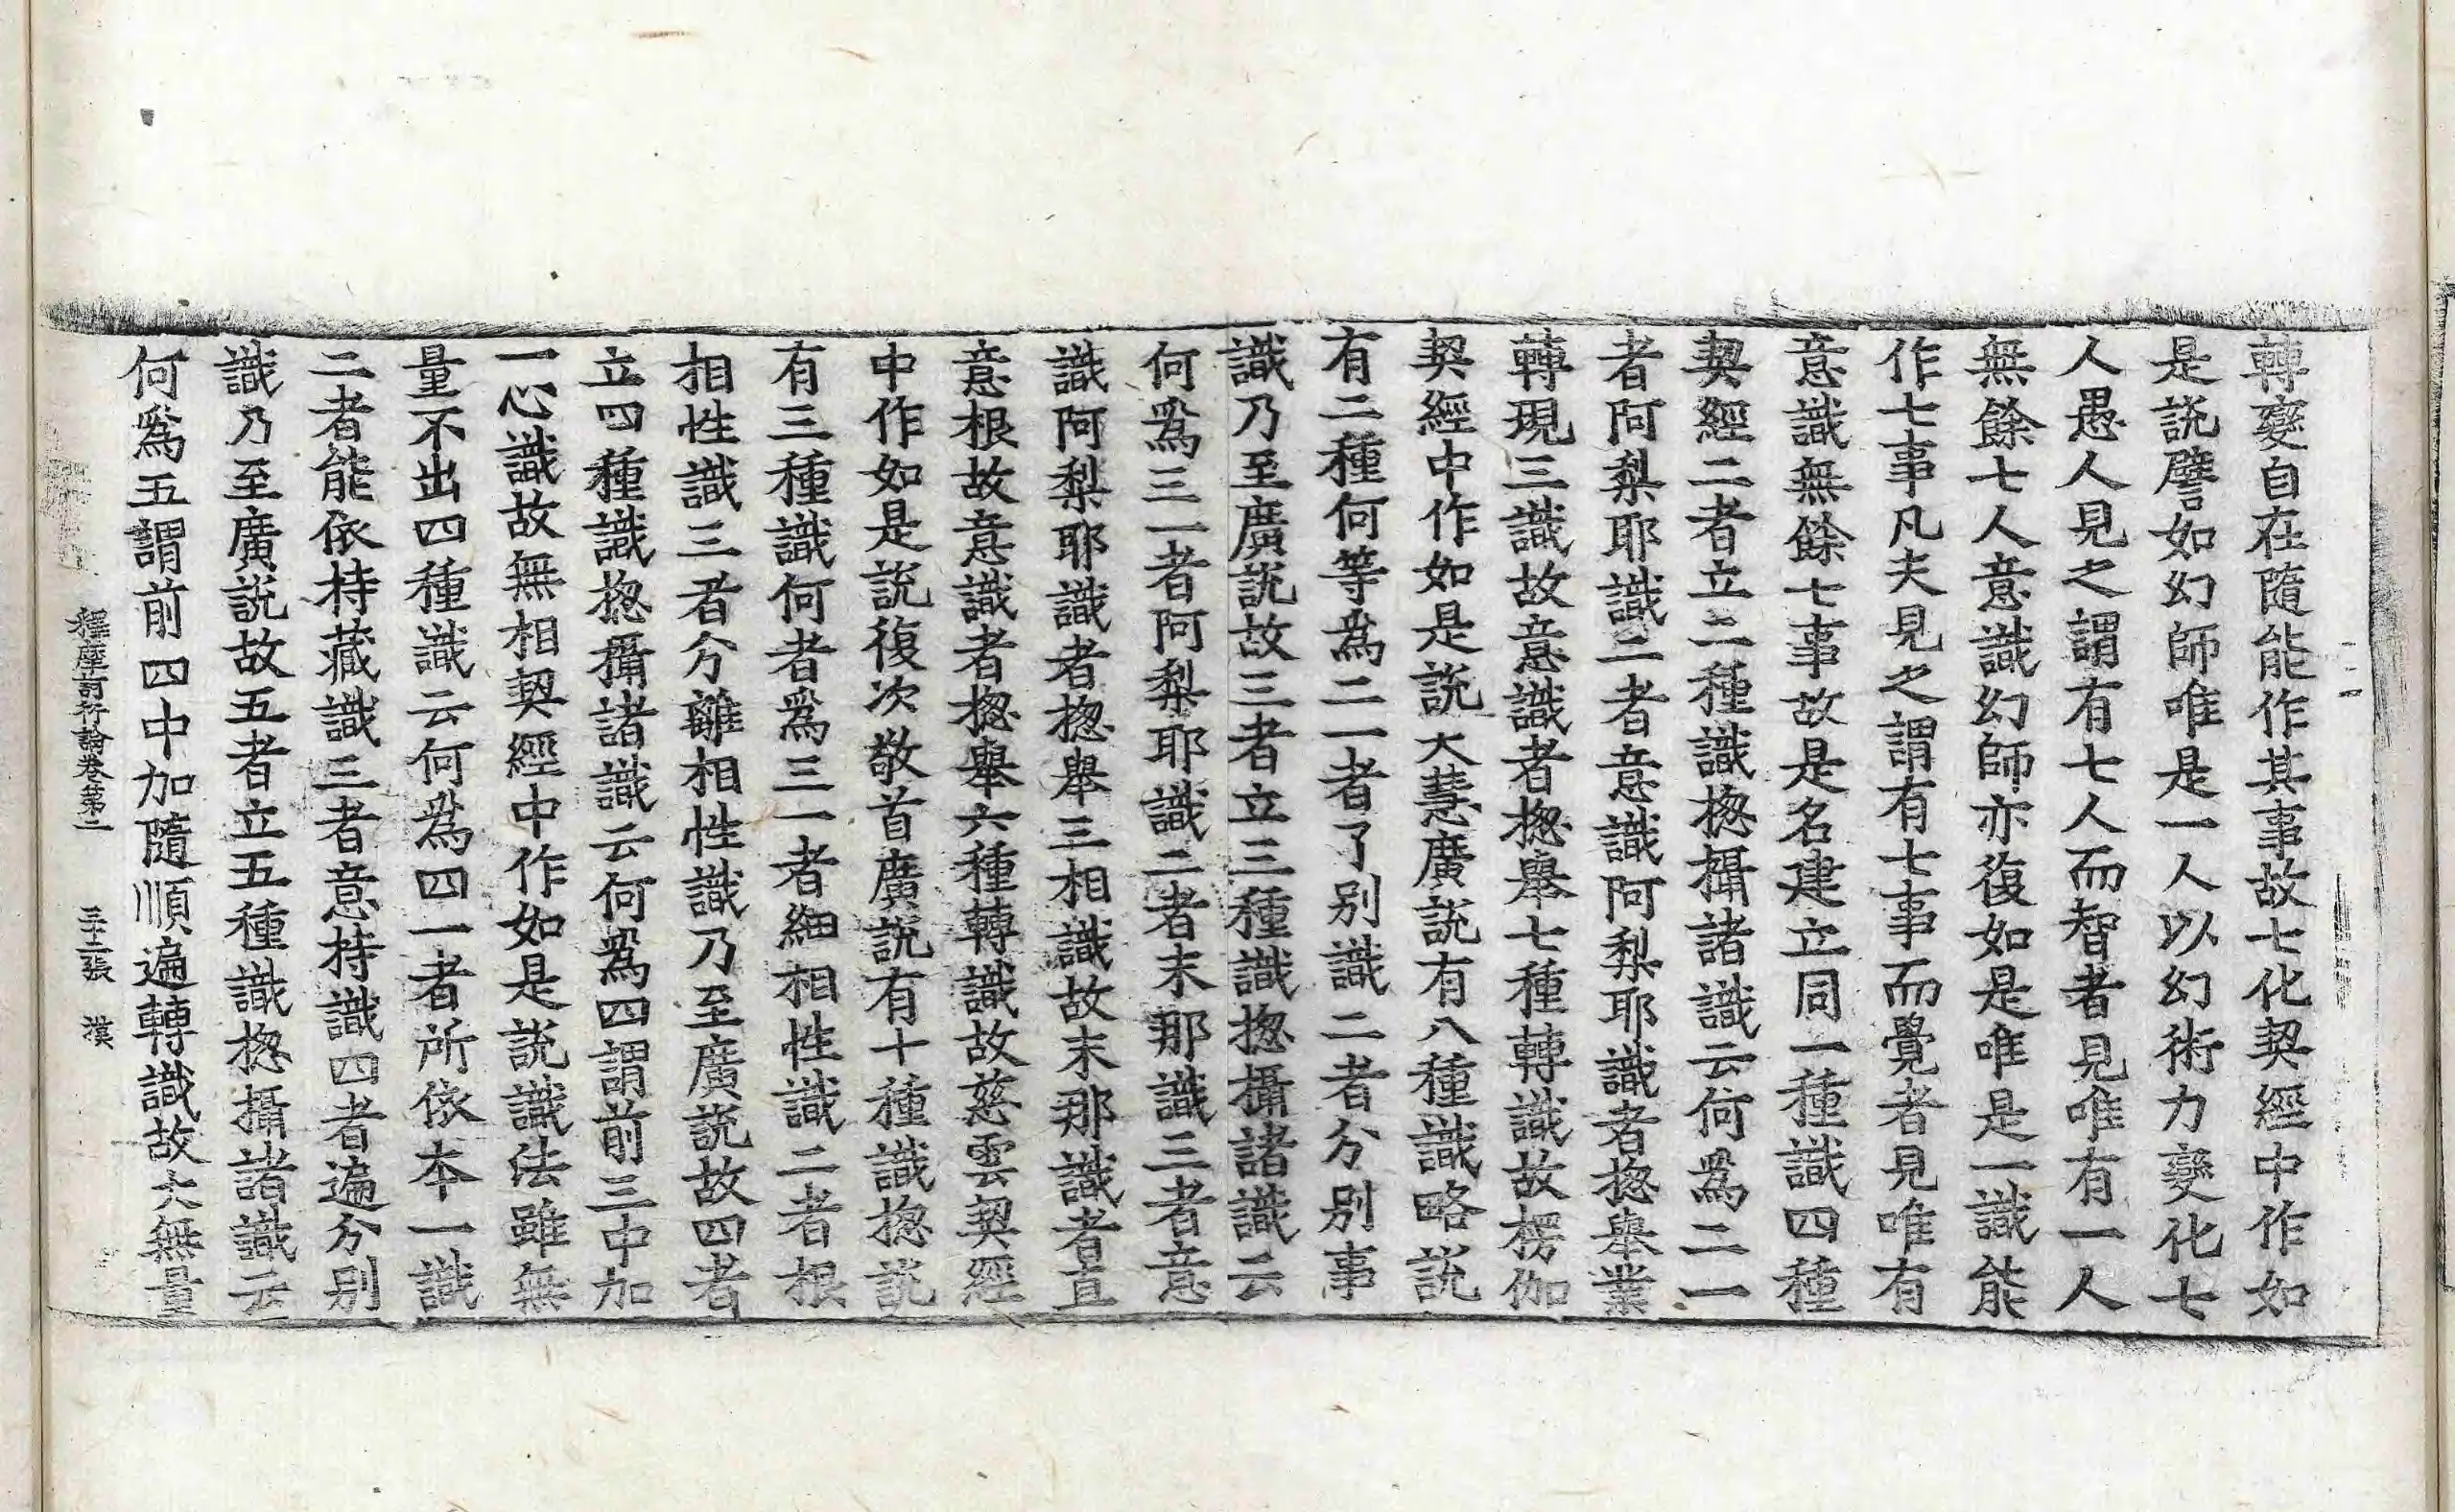 轉變自在隨能作其事故七化契經中作如
是說譬如幻師唯是一人以幻術力變化七
人愚人見之謂有七人而智者見唯有一人
無餘七人意識幻師亦復如是唯是一識能
作七事凡夫見之謂有七事而覺者見唯有
意識無餘七事故是名建立同一種識四種
契經二者立二種識揔攝諸識云何爲二一
者阿梨耶識二者意識阿梨耶識者揔舉業
轉現三識故意識者揔舉七種轉識故楞伽
契經中作如是說大慧廣說有八種識略說
有二種何等爲二一者了別識二者分別事
識乃至廣說故三者立三種識揔攝諸識云
何爲三一者阿梨耶識二者末那識三者意
識阿梨耶識者揔舉三相識故末那識者直
意根故意識者揔舉六種轉識故慈雲契經
中作如是說復次敬首廣說有十種識揔說
有三種識何者爲三一者細相性識二者根
相性識三者分離相性識乃至廣說故四者
立四種識揔攝諸識云何爲四謂前三中加
一心識故無相契經中作如是說識法雖無
量不出四種識云何爲四一者所依本一識
二者能依持藏識三者意持識四者遍分別
識乃至廣說故五者立五種識揔攝諸識云
何爲五謂前四中加隨順遍轉識故大無量
釋摩訶衍論卷第二 三十二張 漢